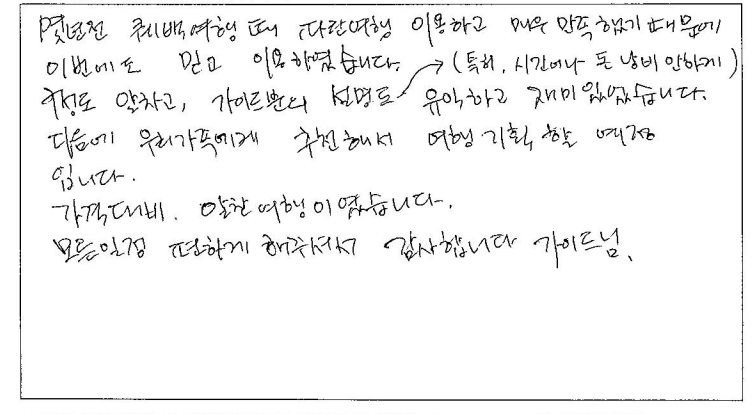 몇년전 퀘백여행 때 파란여행 이용하고 매우 만족했기 때문에
이번에도 믿고 이용하였습니다. → (특히, 시간이나 돈 낭비 안하게)
일정도 알차고, 가이드분의 설명도 유익하고 재미있었습니다.
다음에 우리가족에게 추천해서 여행기획 할 예정
입니다.
가격대비. 알찬 여행이였습니다.
모든일정 편하게 해주셔서 감사합니다 가이드님.